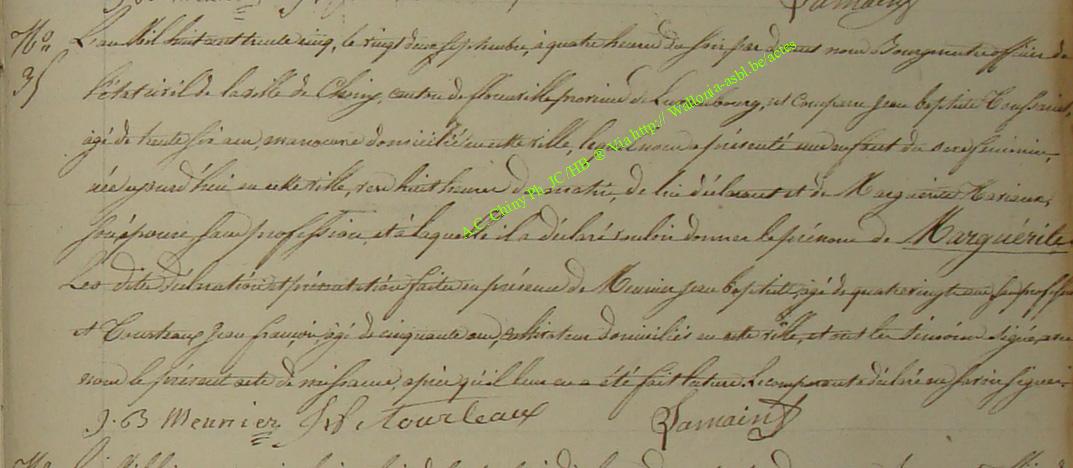 No L'an Mil huit cent trente cinq, le vingt deux septembre, à quatre heures du soir par devant nous Bourgmestre officier de
35 l'état civil de la ville de Chiny, canton de florenville province de Luxembourg, est comparu Jean baptiste Toussaint,
âgé de trente six ans, manoeuvre domicilié en cette ville, lequel nous a présenté un enfant du sexe féminin,
née aujourd'hui en cette ville, vers huit heures du matin, de lui déclarant et de Marguerite
son épouse sans profession, et à laquelle il a déclaré vouloir donner le prénom de Marguérite
Les dites déclaration et présentation faites en présence de Meunier Jean baptiste, âgé de quatre vingts ans sans profession
et Tourteaux Jean françois, âgé de cinquante ans, cultivateur domiciliés en cette ville, et ont les témoins signé avec
nous le présent acte de naissance, après qu'il leur en a été fait lecture. Le comparant a déclaré ne savoir signer.
J. B Meunier J f Tourteaux Lamain
A.C. Chiny Ph. JC /HB @ Via http:// Wallonia-asbl.be/actes